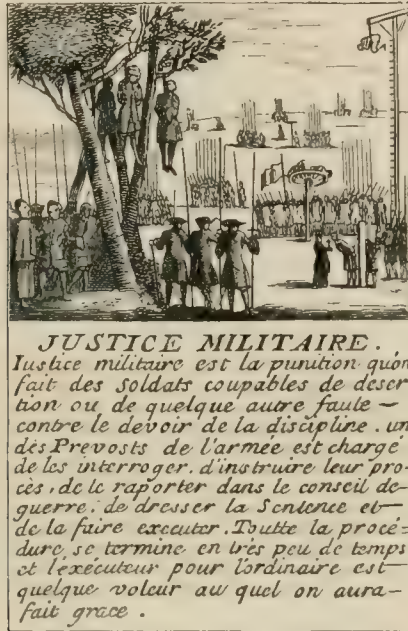 JUSTICE MILITAIRE.
Iustice militaire est la punition qu'on
fait des soldats coupables de deser
tion ou de quelque autre faute —
contre le devoir de la discipline. un
des Prevosts de l'armée est chargé
de les interroger. d'instruire leur pro-
cès, de le raporter dans le conseil de-
guerre, de dresser la Sentence et—
de la faire executer. Toutte la procé=
dure se termine en très peu de temps
et l'exécuteur pour l'ordinaire est—
quelque voleur au quel on aura—
fait grace.